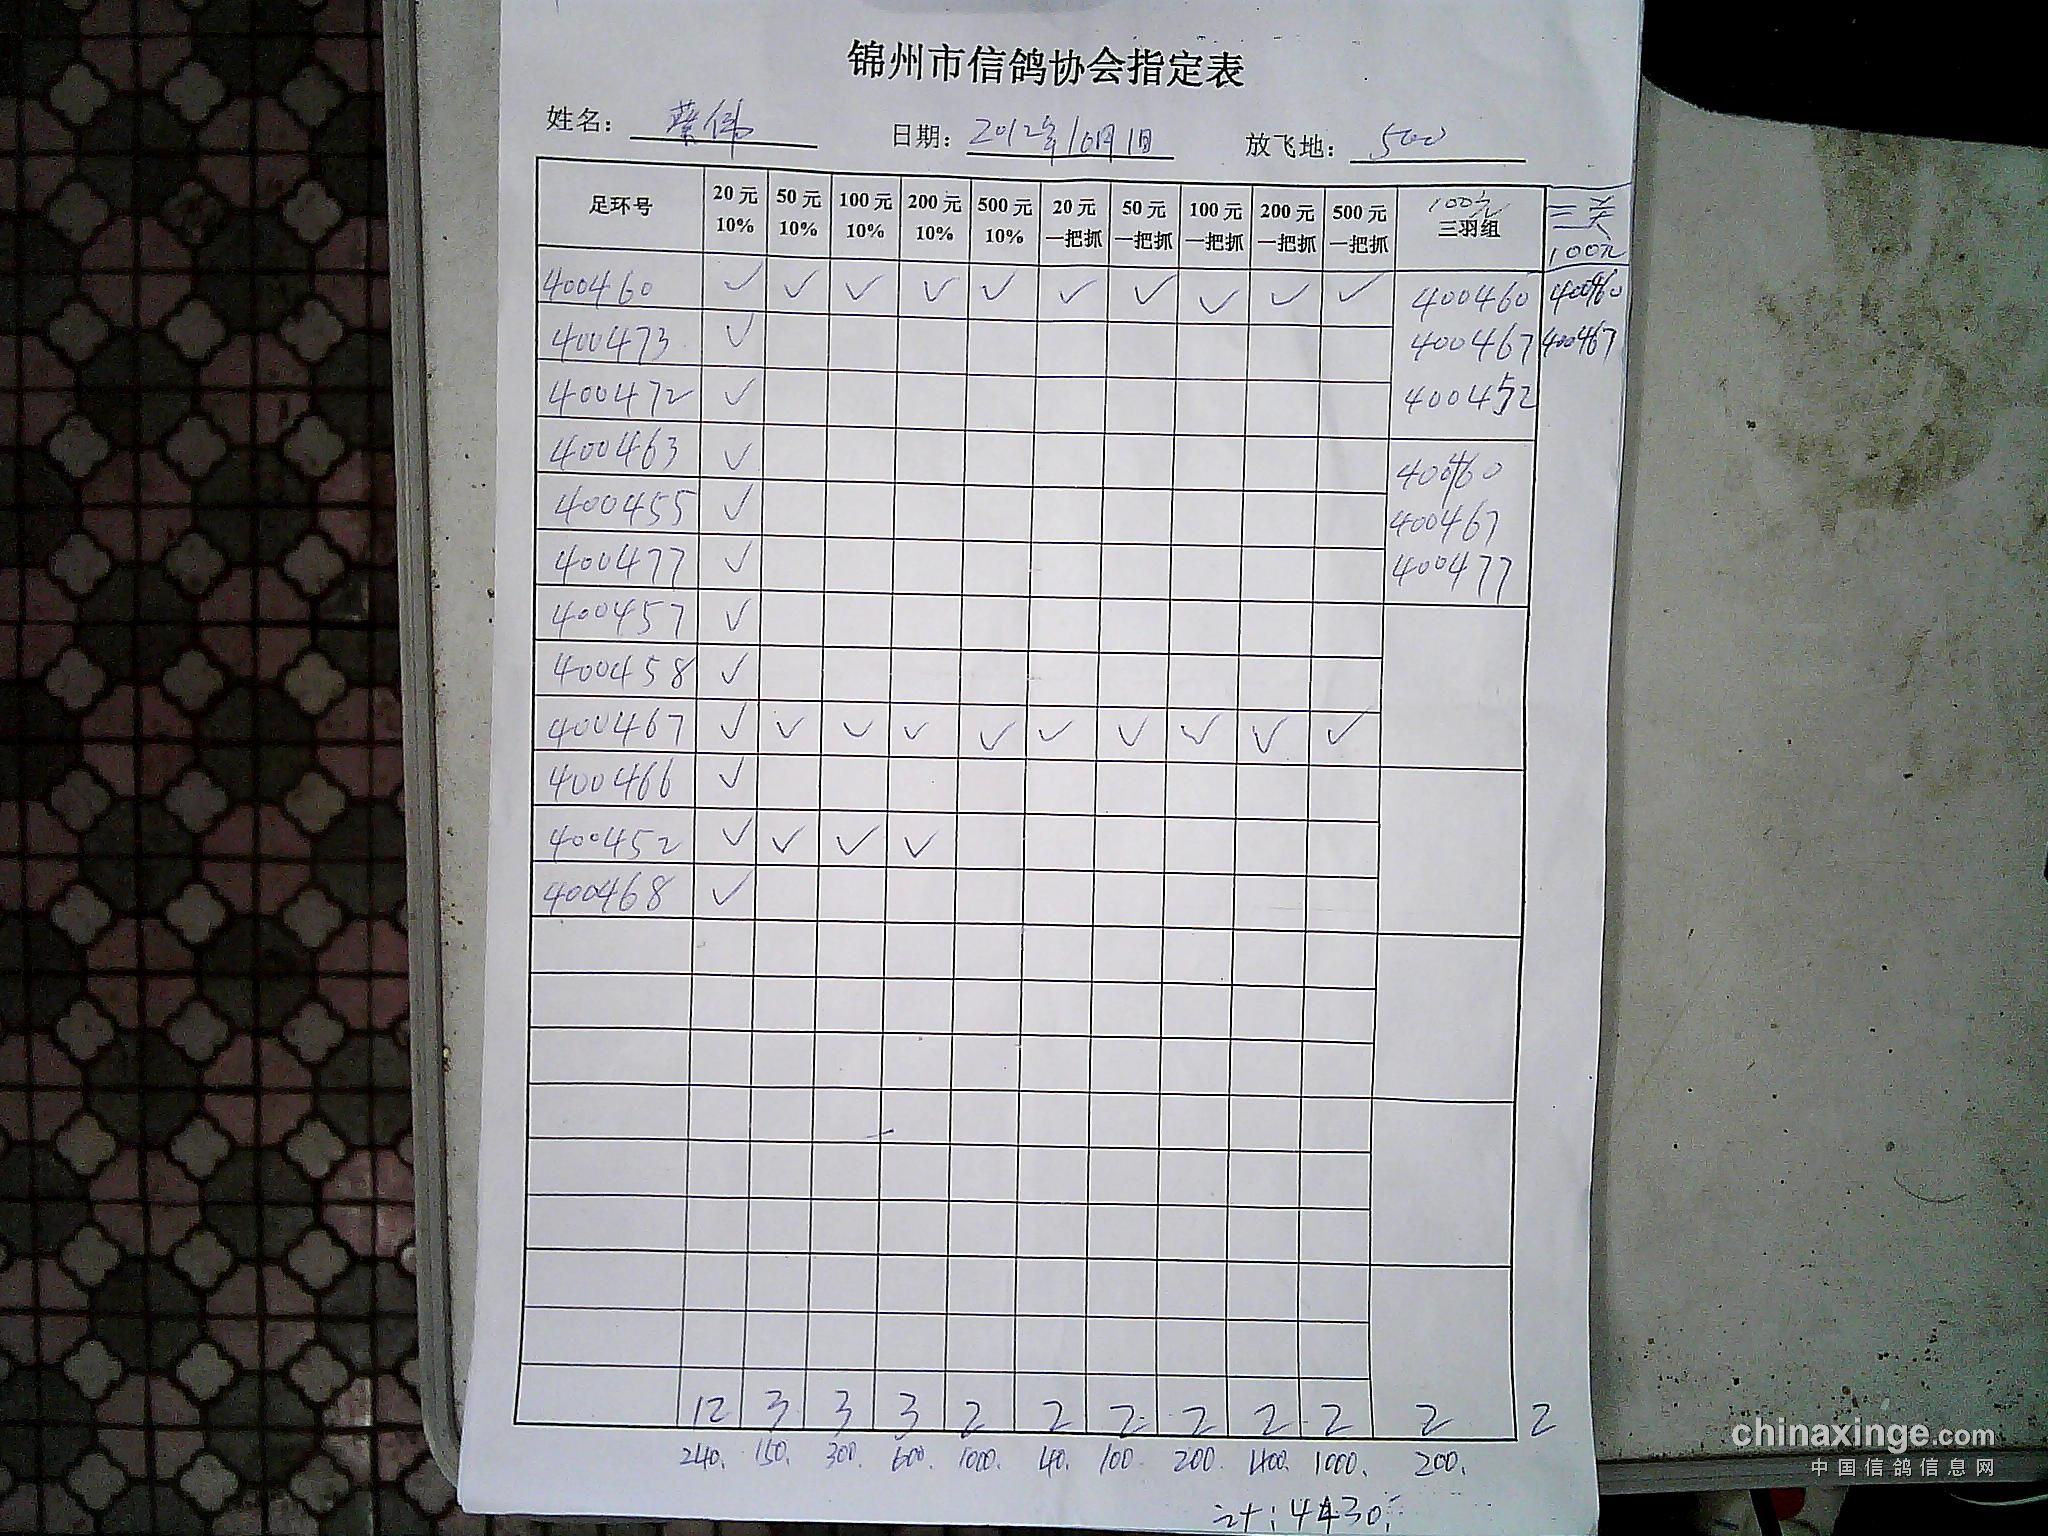 锦州市信鸽协会指定表
姓名: 蔡伟 日期: 2012年10月1日 放飞地: 500
足环号 20元10% 50元10% 100元10% 200元10% 500元10% 20元一把抓 50元一把抓 100元一把抓 200元一把抓 500元一把抓 100元三羽组 二关 100元
400460 ✓ ✓ ✓ ✓ ✓ ✓ ✓ ✓ ✓ ✓ 400460 400460
400473 ✓ 400467 400467
400472 ✓ 400452
400463 ✓ 400460
400455 ✓ 400467
400477 ✓ 400477
400457 ✓
400458 ✓
400467 ✓ ✓ ✓ ✓ ✓ ✓ ✓ ✓ ✓ ✓
400466 ✓
400452 ✓ ✓ ✓ ✓
400468 ✓
12 3 3 3 2 2 2 2 2 2 2 2
240. 150. 300. 600. 1000. 40. 100. 200. 400. 1000. 200.
计: 4430.
chinaxinge.com
中国信鸽信息网